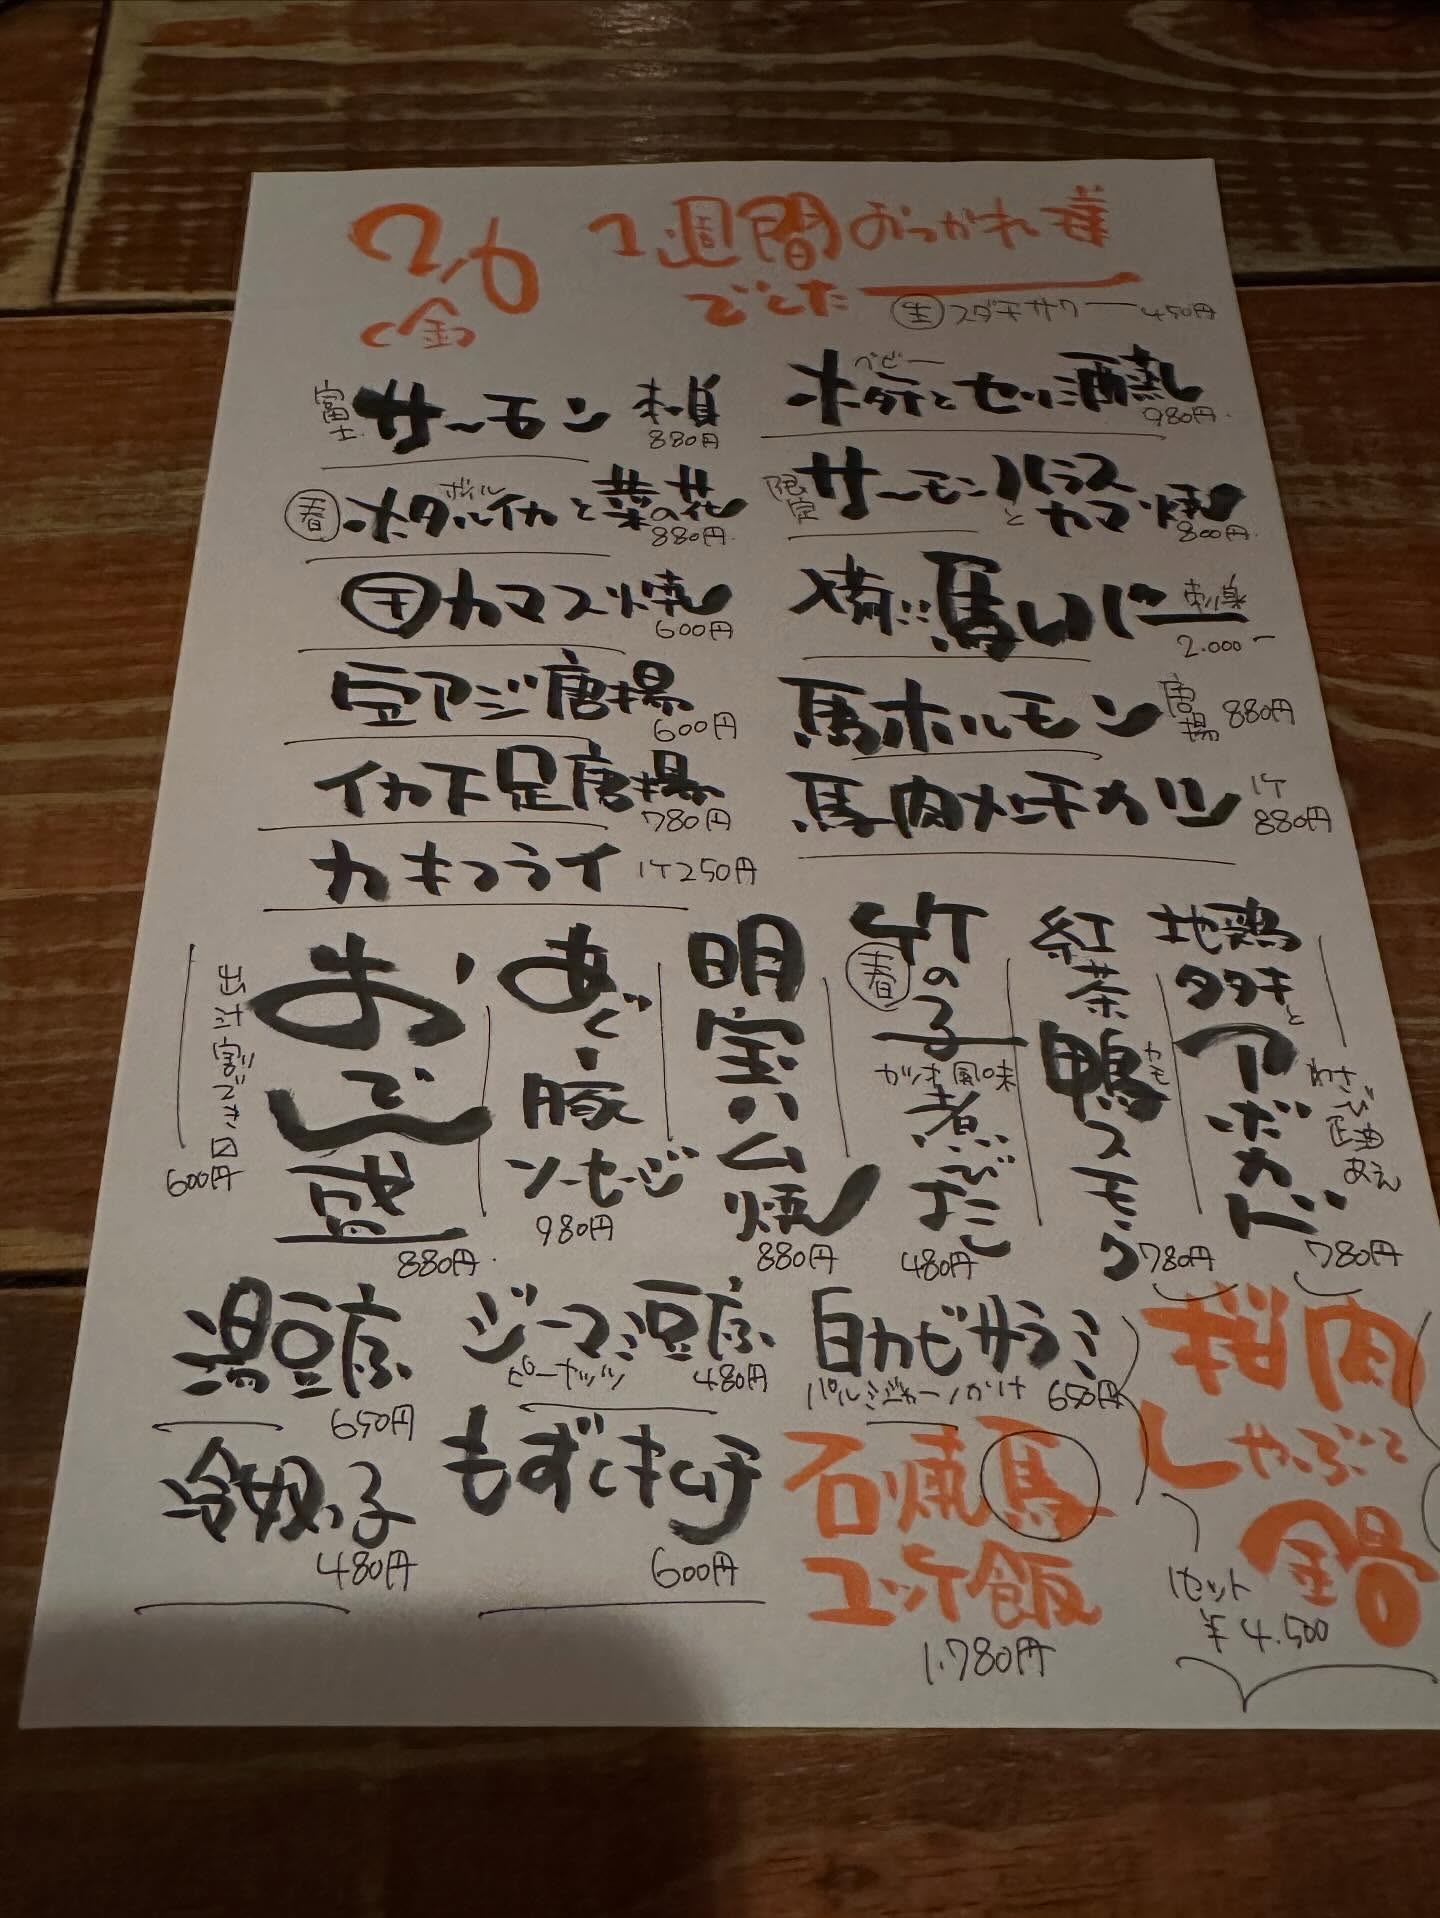 2.6
(金)
1週間おつかれ様
でした
生 スダチサワー 450円
富士 サーモン 刺身
880円
春 ホタルイカと菜の花
ボイル
880円
干 カマス焼
600円
豆アジ唐揚
600円
イカ下足唐揚
780円
カキフライ 1ケ250円
ベビー
ホタテとセリ酒蒸し
980円
限定 サーモンハラスとカマ焼
800円
馬レバー 刺身
2.000-
馬ホルモン 唐揚 880円
馬肉メンチカツ 1ケ
880円
地鶏タタキとアボカド
わさび正油あえ
780円
紅茶鴨スモーク
カモ
780円
春 竹の子
カツオ風味
煮びたし
480円
明宝ハム焼
880円
あぐー豚ソーセージ
980円
おでん盛
880円
出汁割できます
600円
湯豆腐
650円
ジーマミ豆腐
ピーナッツ 480円
白カビサラミ
パルミジャーノかけ 650円
冷奴
480円
もずくキムチ
600円
石焼馬
ユッケ飯
1.780円
桜肉
しゃぶしゃぶ
鍋
1セット
¥4.500